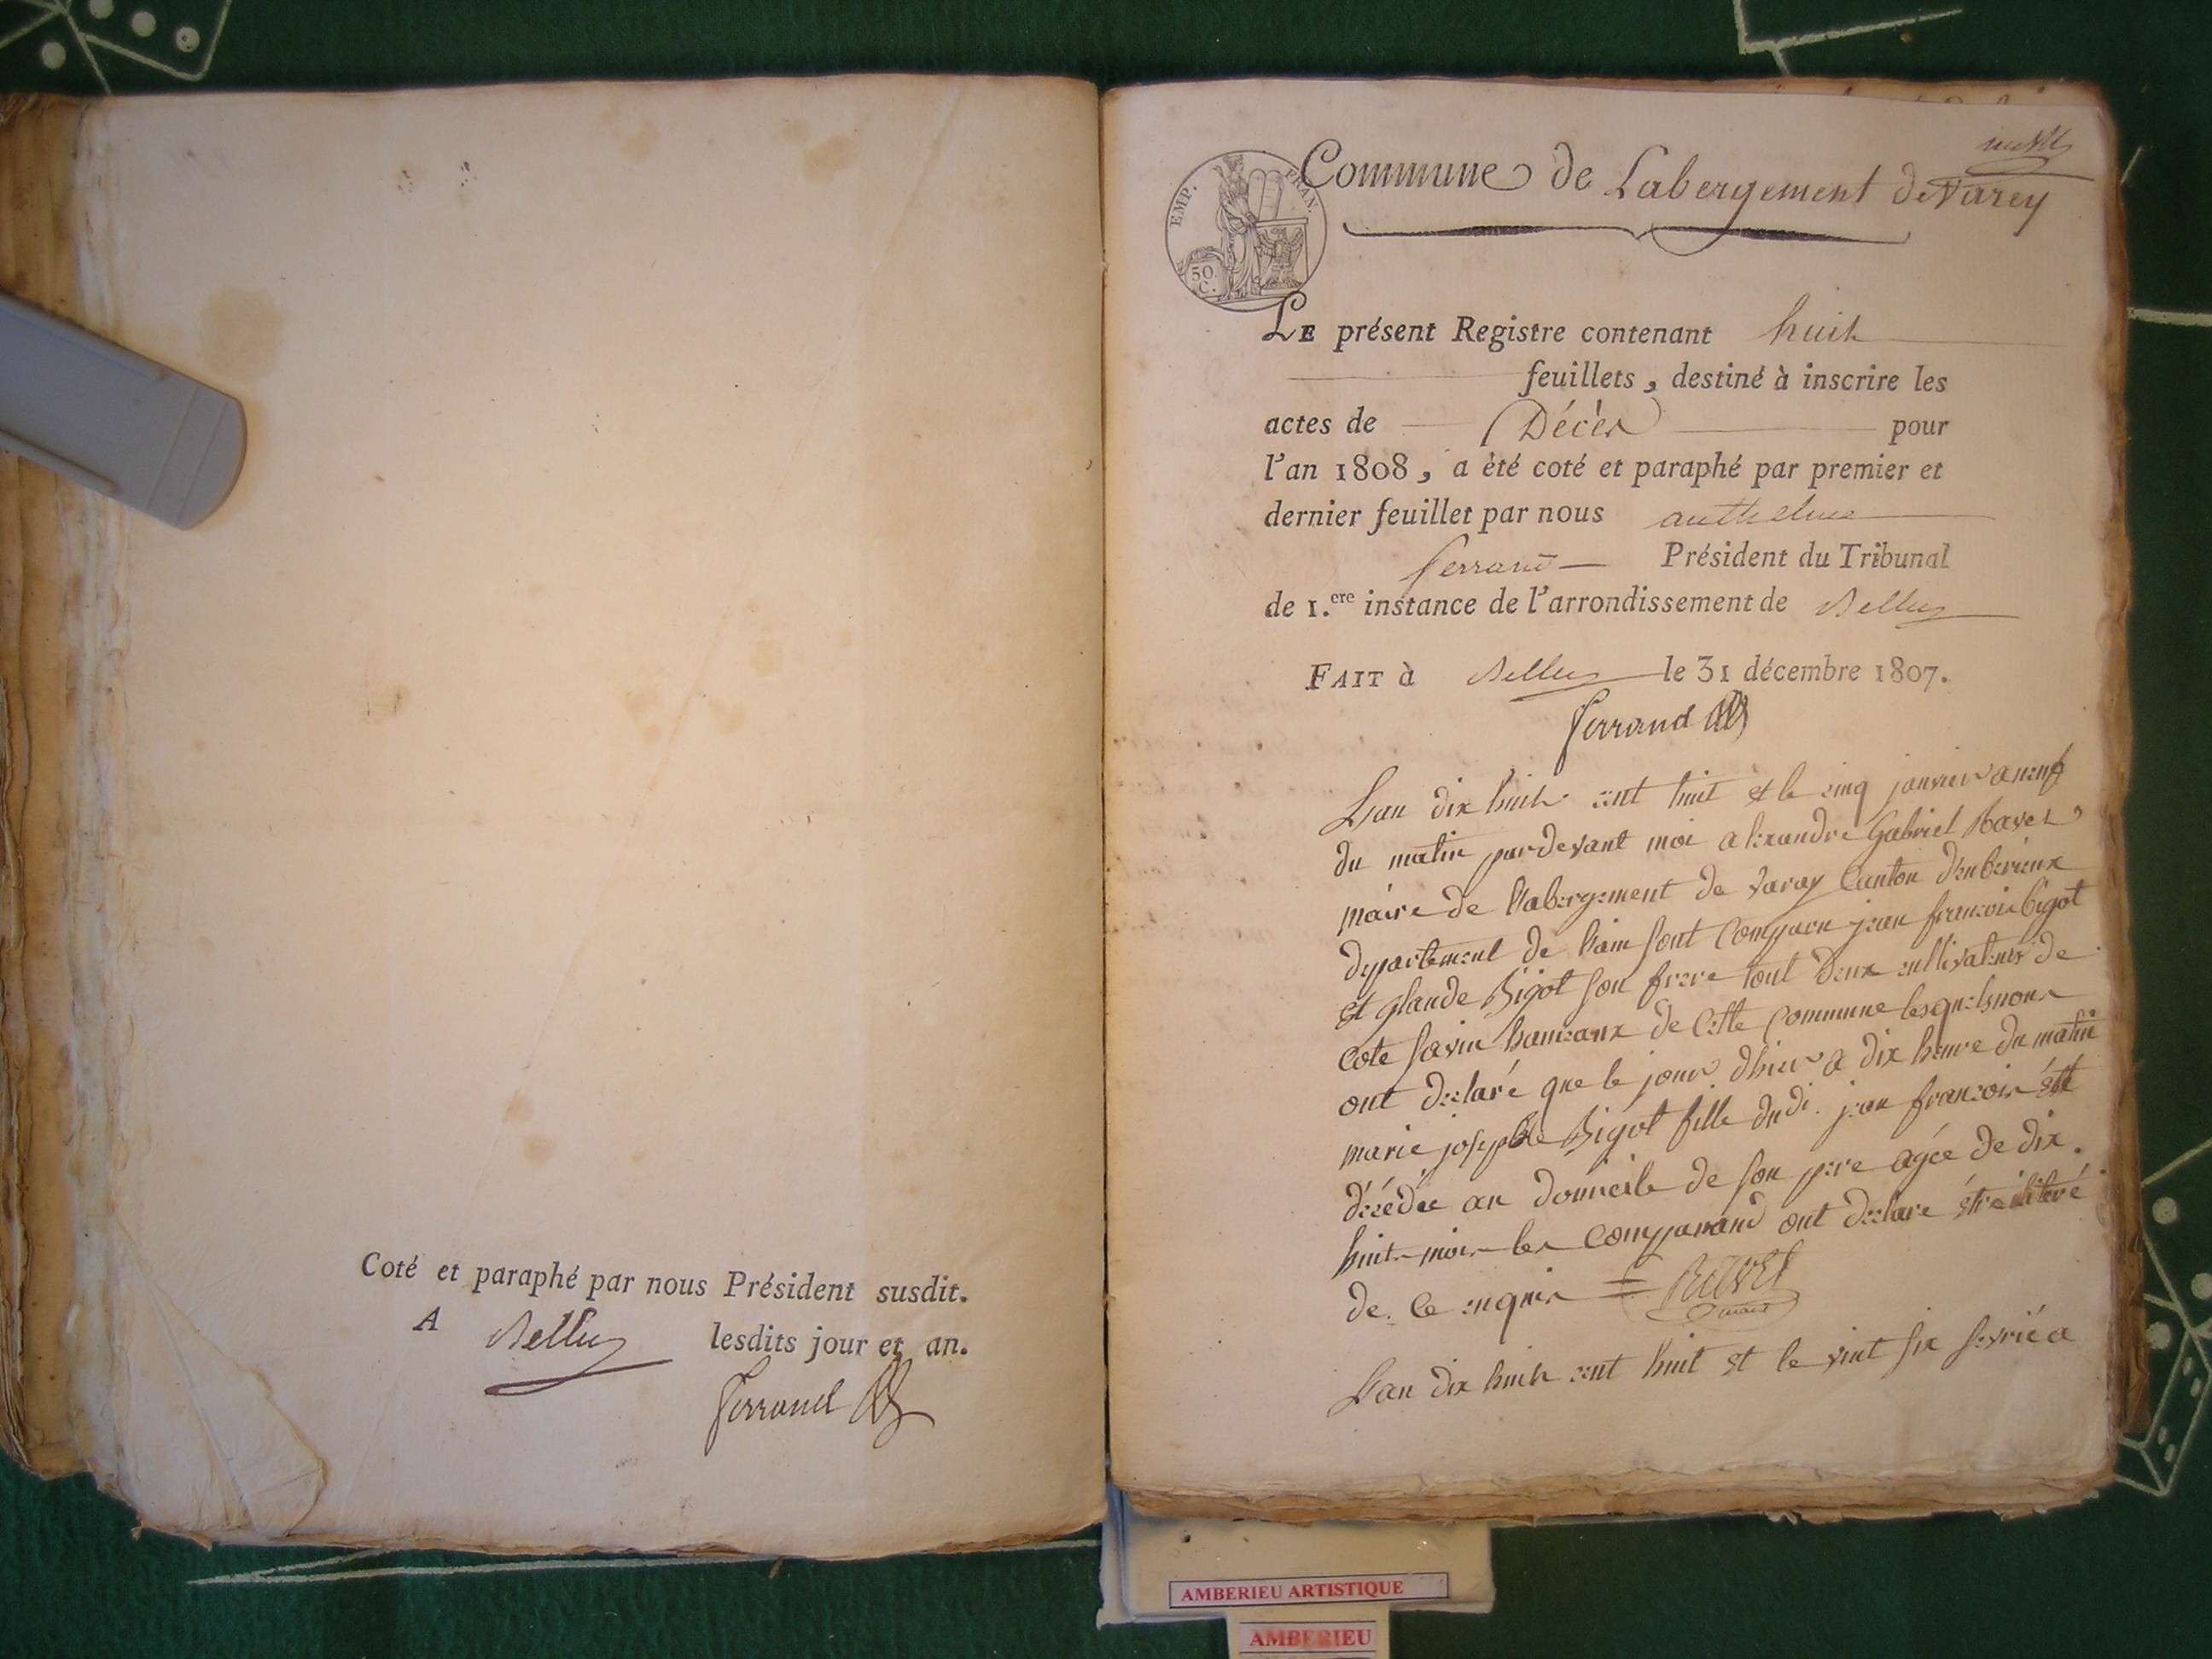 Coté et paraphé par nous Président susdit.
A Belley lesdits jour et an.
Ferrand
Commune de Labergement de Varey
EMP. FRAN.
50
C.
LE présent Registre contenant huit
feuillets, destiné à inscrire les
actes de Décès pour
l'an 1808, a été coté et paraphé par premier et
dernier feuillet par nous anthelme
ferrand Président du Tribunal
de 1.ere instance de l'arrondissement de Belley
FAIT à Belley le 31 décembre 1807.
ferrand
Lan dix huit cent huit et le cinq janvier a neuf
du matin pardevant moi alexandre Gabriel Ravet
maire de Labergement de Varay Canton d'enberieux
departement de lain sont Comparu jean francois bigot
et glaude Bigot son frere tout deux cultivateurs de
Cote savin hameaux de Cette Commune lesquels nous
ont declaré que le jour d'hier a dix heure du matin
marie josephte Bigot fille dudi. jean francois est
décédée au domicile de son pere agée de dix
huit mois les Comparand ont declare étre iliteré
de ce enquis = RAVET
maire
Lan dix huit cent huit et le vint six fevrié a
AMBERIEU ARTISTIQUE
AMBERIEU